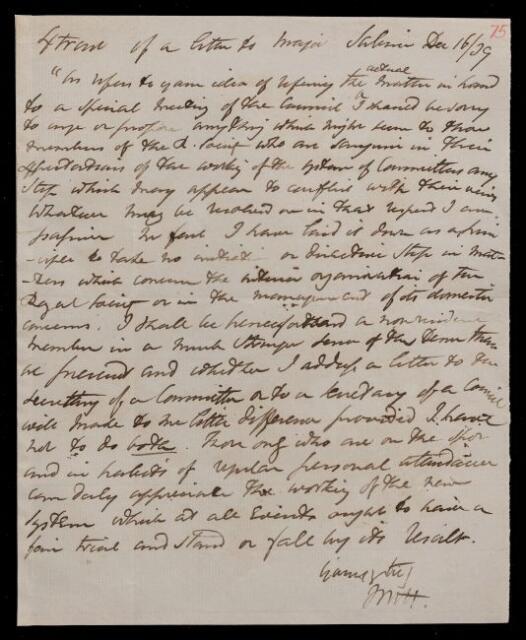 75
Extract of a letter to Major Sabine Dec 16/39
"In reference to your idea of referring the actual matter in hand
to a special meeting of the Council I should be sorry
to urge or propose anything which might seem to those
members of the R. Society who are sanguine in their
expectations of the working of the system of Committees any
step which may appear to conflict with their views
Whatever may be resolved on in that respect I am
passive. In fact I have laid it down as a prin-
-ciple to take no initiative or directive step in mat-
-ters which concern the interior organisation of the
Royal Society or in the management of its domestic
concerns. I shall be henceforward a nonresident
member in a much stronger sense of the term than
at present and whether I address a letter to the
secretary of a Committee or to a secretary of a Council
will make to me little difference provided I have
not to do both. Those only who are on the spot
and in habits of regular personal attendance
can duly appreciate the working of the new
system which at all events ought to have a
fair trial and stand or fall by its result.
Yours &c
JFWH.